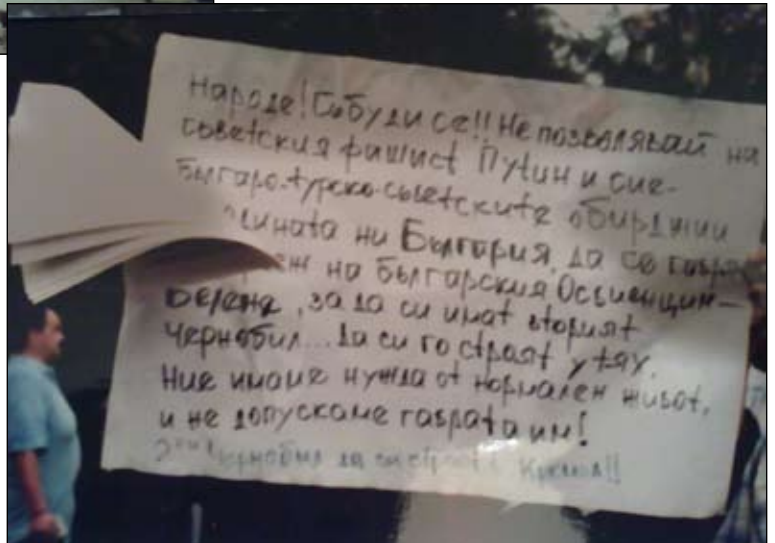 Народе! Събуди се!! Не позволявай на
съветския фашист Путин и сие-
българо-турско-съветските обирджии
ни България, да се
на българския Освиенцим-
Белене, за да си имат вторият
Чернобил... Да си го строят у тях.
Ние имаме нужда от нормален живот,
и не допускаме гаврата им!
да си строят в Кремъл!!